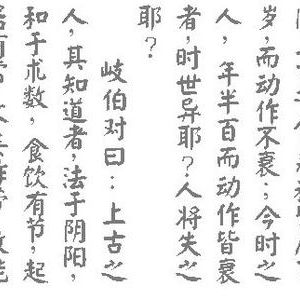 岁,而动作不衰;今时之
人,年半百而动作皆衰
者,时世异耶?人将失之
耶?
岐伯对曰:上古之
人,其知道者,法于阴阳,
和于术数,食饮有节,起